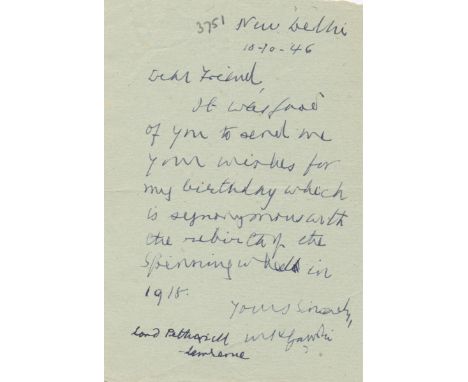 3751 New Delhi
10-10-46
Dear Friend,
It was good
of you to send me
your wishes for
my birthday which
is synonymous with
the rebirth of the
spinning wheel in
1918.
Yours Sincerely,
Lord Pethwick MKGandhi
Lawrence